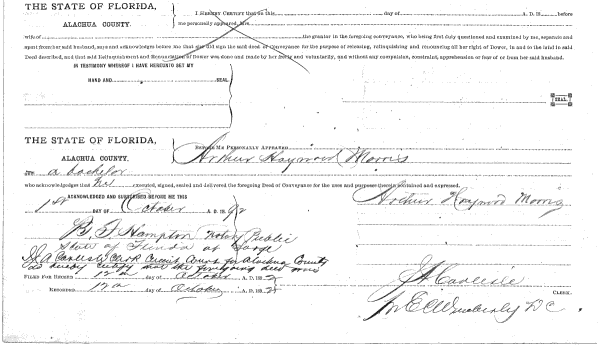 THE STATE OF FLORIDA,
ALACHUA COUNTY.
I HEREBY CERTIFY that on this day of A. D. 18 before
me personally appeared, Mrs.
wife of the grantor in the foregoing conveyance, who being first duly questioned and examined by me, separate and
apart from her said husband, says and acknowledges before me that she did sign the said deed of Conveyance for the purpose of releasing, relinquishing and renouncing all her right of Dower, in and to the land in said
Deed described, and that said Relinquishment and Renunciation of Dower was done and made by her freely and voluntarily, and without any compulsion, constraint, apprehension or fear of or from her said husband.
IN TESTIMONY WHEREOF I HAVE HEREUNTO SET MY
HAND AND SEAL
SEAL.
THE STATE OF FLORIDA,
ALACHUA COUNTY.
BEFORE ME PERSONALLY APPEARED
Arthur Haywood Morris
a bachelor
who acknowledges that he executed, signed, sealed and delivered the foregoing Deed of Conveyance for the uses and purposes therein contained and expressed.
ACKNOWLEDGED AND SUBSCRIBED BEFORE ME THIS
1st DAY OF October A. D. 1892
Arthur Haywood Morris
B. F. Hampton Notary Public
State of Florida at Large
I J. A. Carlisle Clerk Circuit Court for Alachua County
do hereby certify that the foregoing deed was
FILED FOR RECORD 12th day of October A. D. 1892
RECORDED 12th day of October A. D. 1892
J A Carlisle
CLERK.
DC